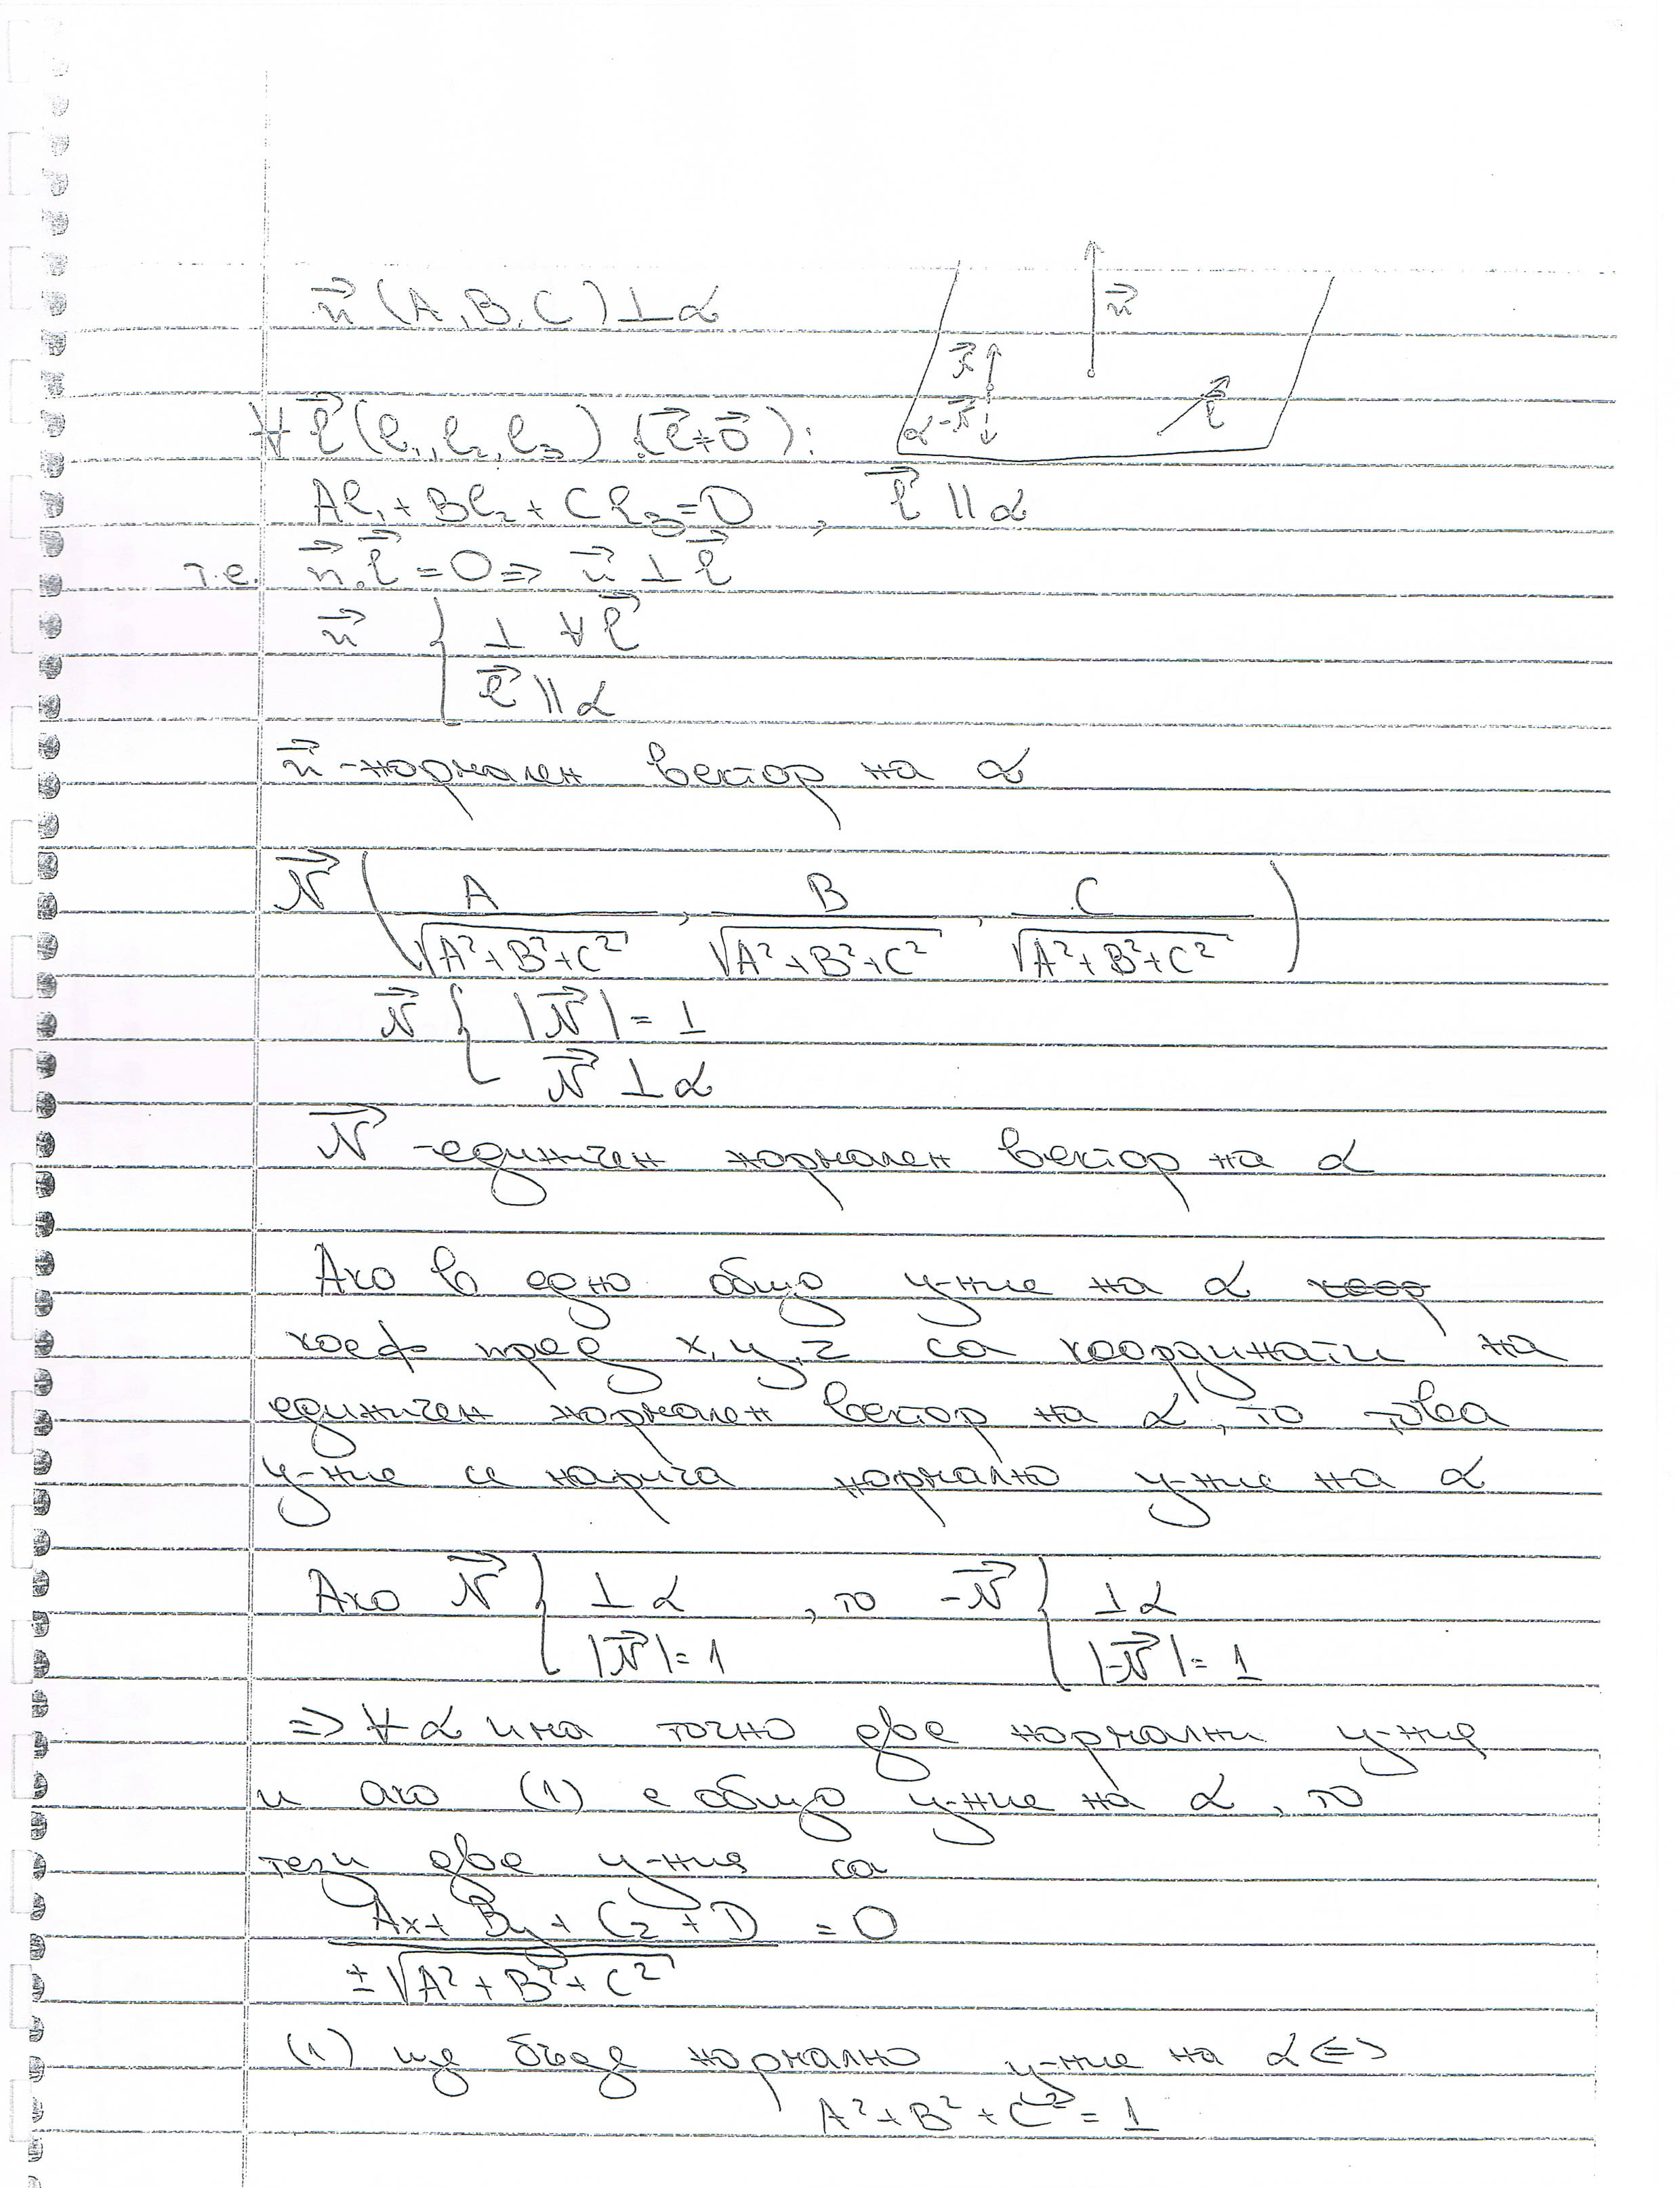 n⃗ (A, B, C) ⊥ α
n⃗
N⃗
α -N⃗
l⃗
∀ l⃗ (l₁, l₂, l₃) (l⃗ ≠ 0⃗):
Al₁ + Bl₂ + Cl₃ = 0, l⃗ || α
т.е. n⃗.l⃗ = 0 => n⃗ ⊥ l⃗
n⃗ { ⊥ ∀ l⃗
l⃗ || α
n⃗ - нормален вектор на α
N⃗ ( A/√(A²+B²+C²), B/√(A²+B²+C²), C/√(A²+B²+C²) )
N⃗ { |N⃗| = 1
N⃗ ⊥ α
N⃗ - единичен нормален вектор на α
Ако в едно общо у-ние на α
коеф пред x, y, z са координати на
единичен нормален вектор на α, то това
у-ние се нарича нормално у-ние на α
Ако N⃗ { ⊥ α , то -N⃗ { ⊥ α
|N⃗| = 1 |-N⃗| = 1
=> ∀ α има точно две нормални у-ния
и ако (1) е общо у-ние на α, то
тези две у-ния са
(Ax + By + Cz + D) / (±√(A² + B² + C²)) = 0
(1) ще бъде нормално у-ние на α <=>
A² + B² + C² = 1